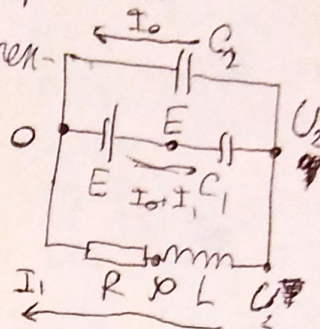 I₀
C₂
O
E
U₂
E
I₀+I₁
C₁
I₁
R
φ
L
U₂